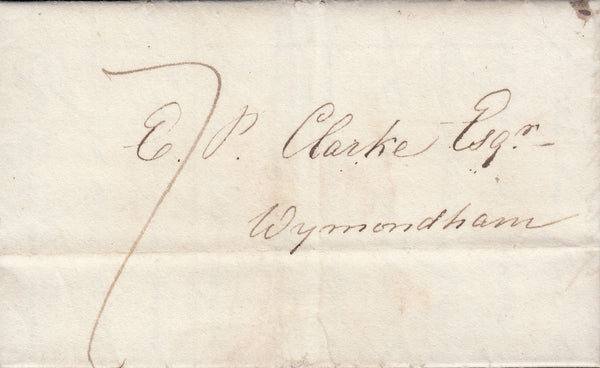 7
E. P. Clarke Esqr
Wymondham